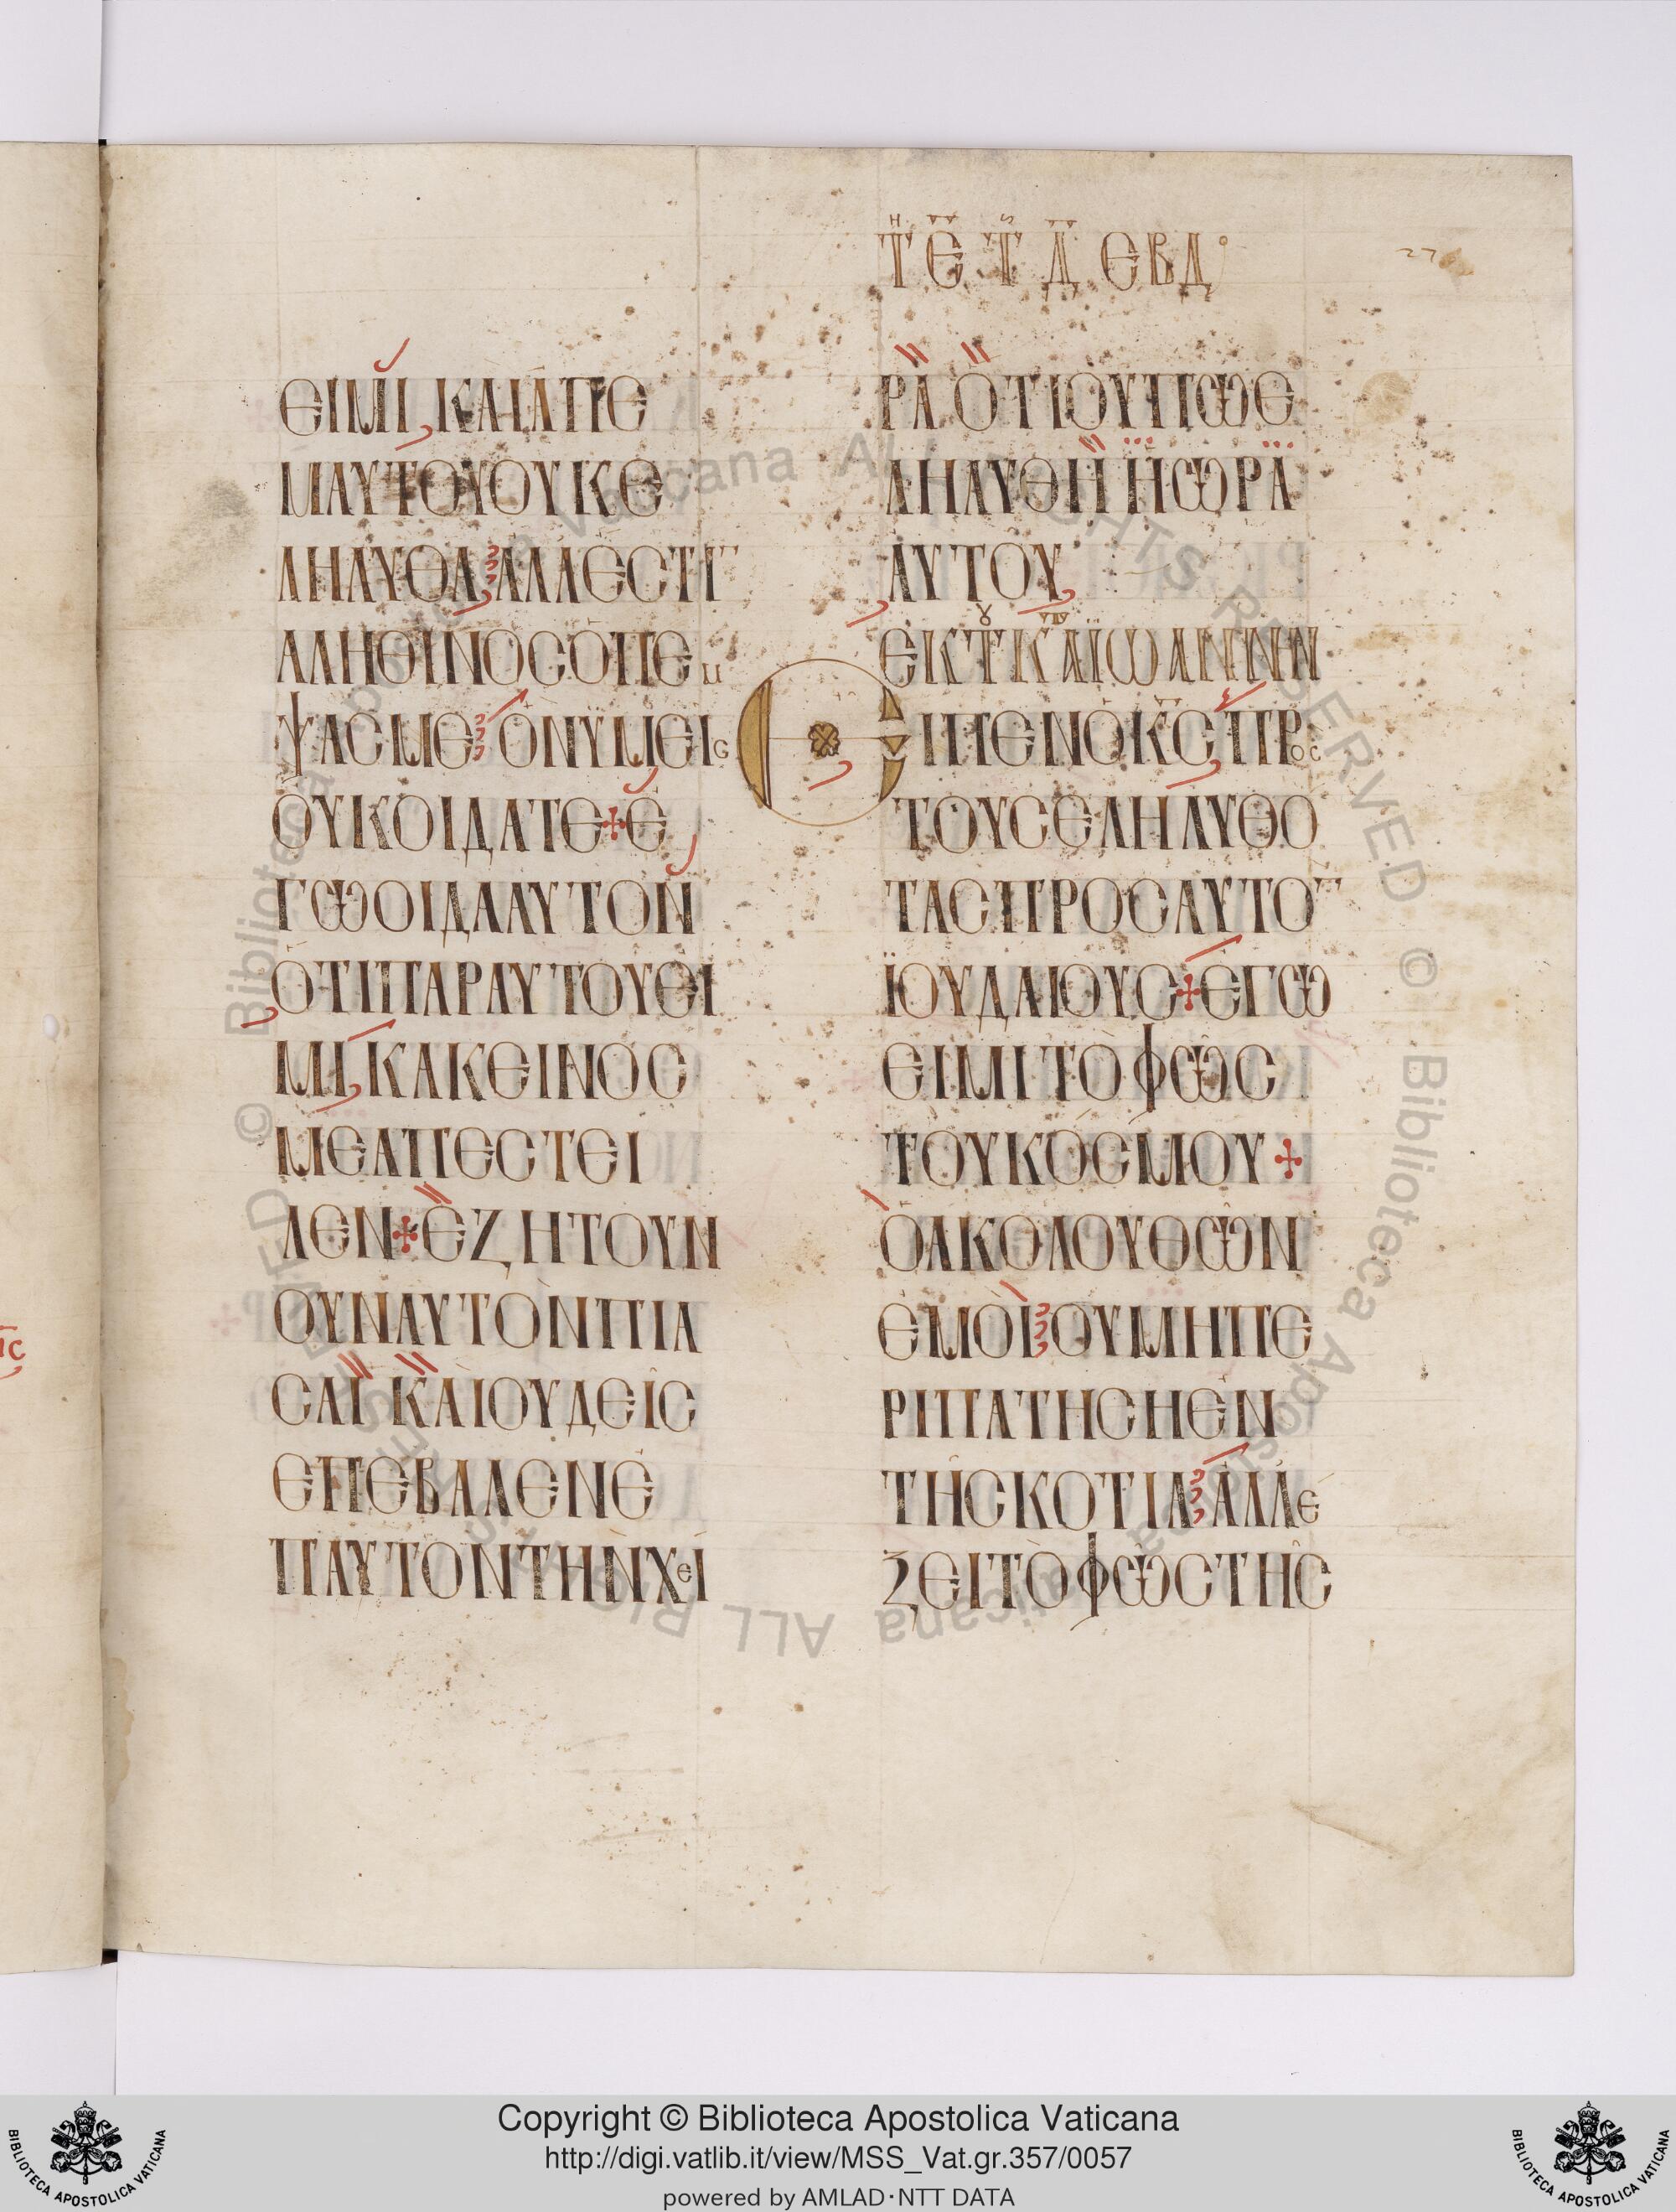 ΤΗ Ε̄ Τ̄ς Δ̄ ΕΒΔ
27
ΕΙΜΙ ΚΑΙ ΑΠΕ
ΜΑΥΤΟΥ ΟΥΚ Ε
ΛΗΛΥΘΑ ΑΛΛ ΕΣΤΙ̅
ΑΛΗΘΙΝΟΣ Ο ΠΕΜ
ΨΑΣ ΜΕ ΟΝ ΥΜΕΙΣ
ΟΥΚ ΟΙΔΑΤΕ + Ε
ΓΩ ΟΙΔΑ ΑΥΤΟΝ
ΟΤΙ ΠΑΡ ΑΥΤΟΥ ΕΙ
ΜΙ ΚΑΚΕΙΝΟΣ
ΜΕ ΑΠΕΣΤΕΙ
ΛΕΝ + ΕΖΗΤΟΥΝ
ΟΥΝ ΑΥΤΟΝ ΠΙΑ
ΣΑΙ ΚΑΙ ΟΥΔΕΙΣ
ΕΠΕΒΑΛΕΝ Ε
Π ΑΥΤΟΝ ΤΗΝ ΧΕΙ
ΡΑ ΟΤΙ ΟΥΠΩ Ε
ΛΗΛΥΘΗ Η ΩΡΑ
ΑΥΤΟΥ
ΕΚ Τ ΚΑΤΑ ΙΩΑΝΝΗΝ
ΕΙΠΕΝ Ο Κ̅Σ̅ ΠΡΟΣ
ΤΟΥΣ ΕΛΗΛΥΘΟ
ΤΑΣ ΠΡΟΣ ΑΥΤΟ̅
ΙΟΥΔΑΙΟΥΣ + ΕΓΩ
ΕΙΜΙ ΤΟ ΦΩΣ
ΤΟΥ ΚΟΣΜΟΥ +
Ο ΑΚΟΛΟΥΘΩΝ
ΕΜΟΙ ΟΥ ΜΗ ΠΕ
ΡΙΠΑΤΗΣΗ ΕΝ
ΤΗ ΣΚΟΤΙΑ ΑΛΛ Ε
ΞΕΙ ΤΟ ΦΩΣ ΤΗΣ
Copyright © Biblioteca Apostolica Vaticana
http://digi.vatlib.it/view/MSS_Vat.gr.357/0057
powered by AMLAD·NTT DATA
BIBLIOTECA APOSTOLICA VATICANA
BIBLIOTECA APOSTOLICA VATICANA